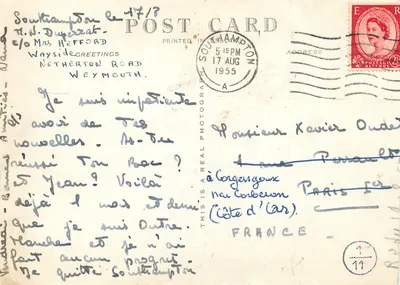 Southampton le 17/8
H.N. Duperrat
c/o Mrs HEFFORD
Wayside
NETHERTON ROAD
WEYMOUTH.
POST CARD
PRINTED IN
GREETINGS
SOUTHAMPTON
5 15 PM
17 AUG
1955
A
E R
THIS IS A REAL PHOTOGRAPH
Je suis impatiente
d'avoir de Tes
nouvelles. As-tu
réussi Ton Bac ?
et Jean ? Voilà
déjà 1 mois et demi
que je suis Outre.
Manche et je n'ai
fait aucun progrès.
Je quitte Southampton
Vendredi - Bonnes Amitiés -
Monsieur Xavier Oudet
1 rue Perrault
PARIS Ier
à Gorgeguoux
par Corberon
(Côte d'Or).
FRANCE
1
11